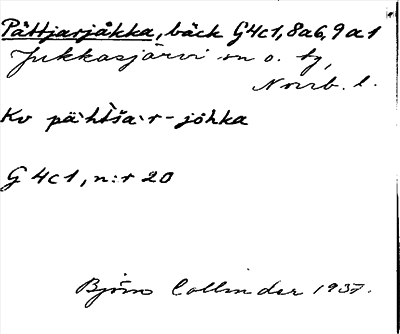 Pättjasjåkka, bäck G4c1,8a6,9a1
Jukkasjärvi sn o. tg,
Norrb. l.
Kv pä·htša·r-johka
G 4c1, n:r 20
Björn Collinder 1937.